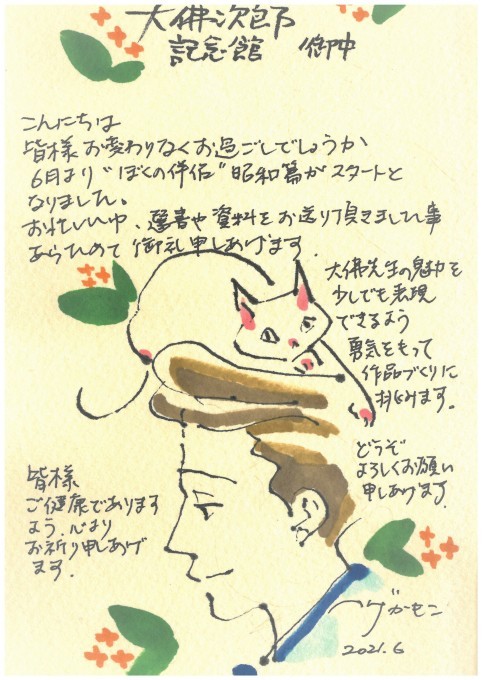 大佛次郎
記念館 御中
こんにちは
皆様お変わりなくお過ごしでしょうか
6月より"ぼくの伴侶"昭和篇がスタートと
なりました。
お忙しい中、叢書や資料をお送り頂きました事
あらためて御礼申しあげます。
大佛先生の魅力を
少しでも表現
できるよう
勇気をもって
作品づくりに
挑みます。
どうぞ
よろしくお願い
申しあげます。
皆様
ご健康であります
よう、心より
お祈り申しあげ
ます。
2021.6